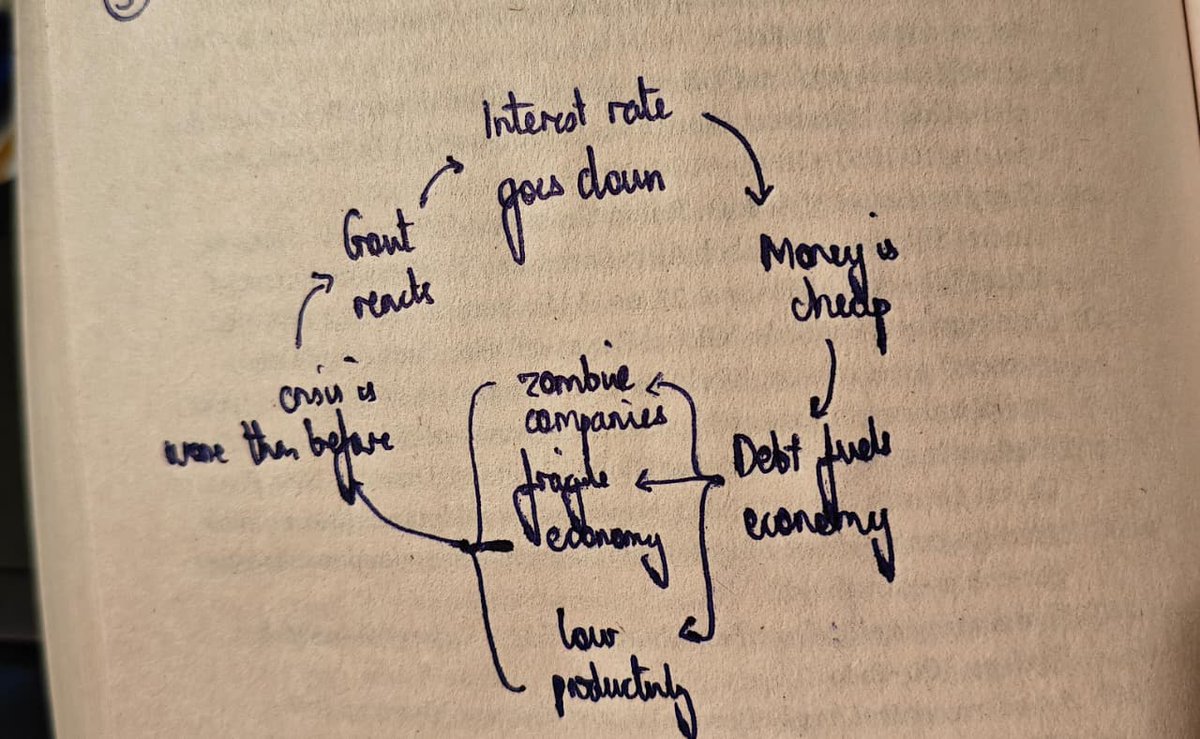 Interest rate
goes down
Money is
cheap
Debt fuels
economy
zombie
companies
fragile
economy
low
productivity
crisis is
worse then before
Govt
reacts